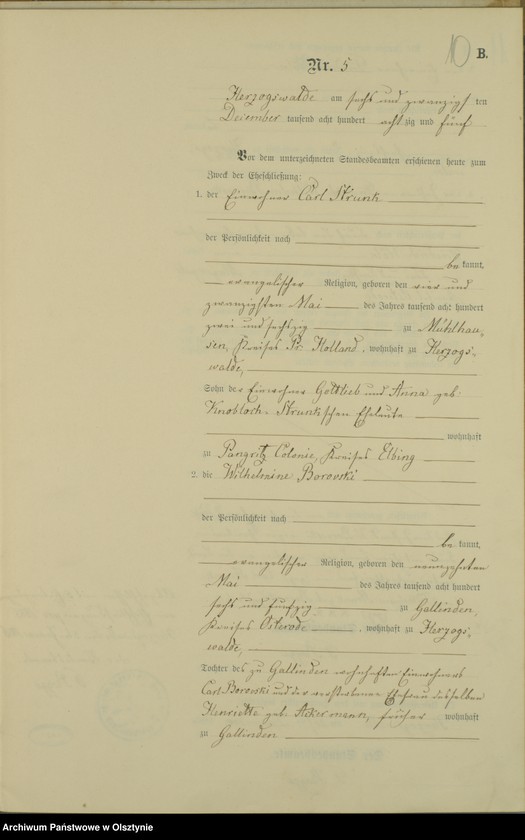 10 B.
Nr. 5
Herzogswalde am sechs und zwanzigs ten
Dezember tausend acht hundert achtzig und fünf
Vor dem unterzeichneten Standesbeamten erschienen heute zum
Zweck der Eheschließung:
1. der Einwohner Carl Strunk
der Persönlichkeit nach
be kannt,
evangelischer Religion, geboren den vier und
zwanzigsten Mai des Jahres tausend acht hundert
zwei und sechszig zu Mühlhau-
sen, Kreises Pr. Holland, wohnhaft zu Herzogs-
walde,
Sohn der Einwohner Gottlieb und Anna geb.
Knobloch-Strunkschen Eheleute
wohnhaft
zu Pangritz Colonie, Kreises Elbing
2. die Wilhelmine Borowski
der Persönlichkeit nach
be kannt,
evangelischer Religion, geboren den neunzehnten
Mai des Jahres tausend acht hundert
sechs und fünfzig zu Gallinden,
Kreises Osterode, wohnhaft zu Herzogs-
walde,
Tochter des zu Gallinden wohnhaften Einwohners
Carl Borowski und der verstorbenen Ehefrau desselben
Henriette geb. Ackermann, früher wohnhaft
zu Gallinden
Archiwum Państwowe w Olsztynie